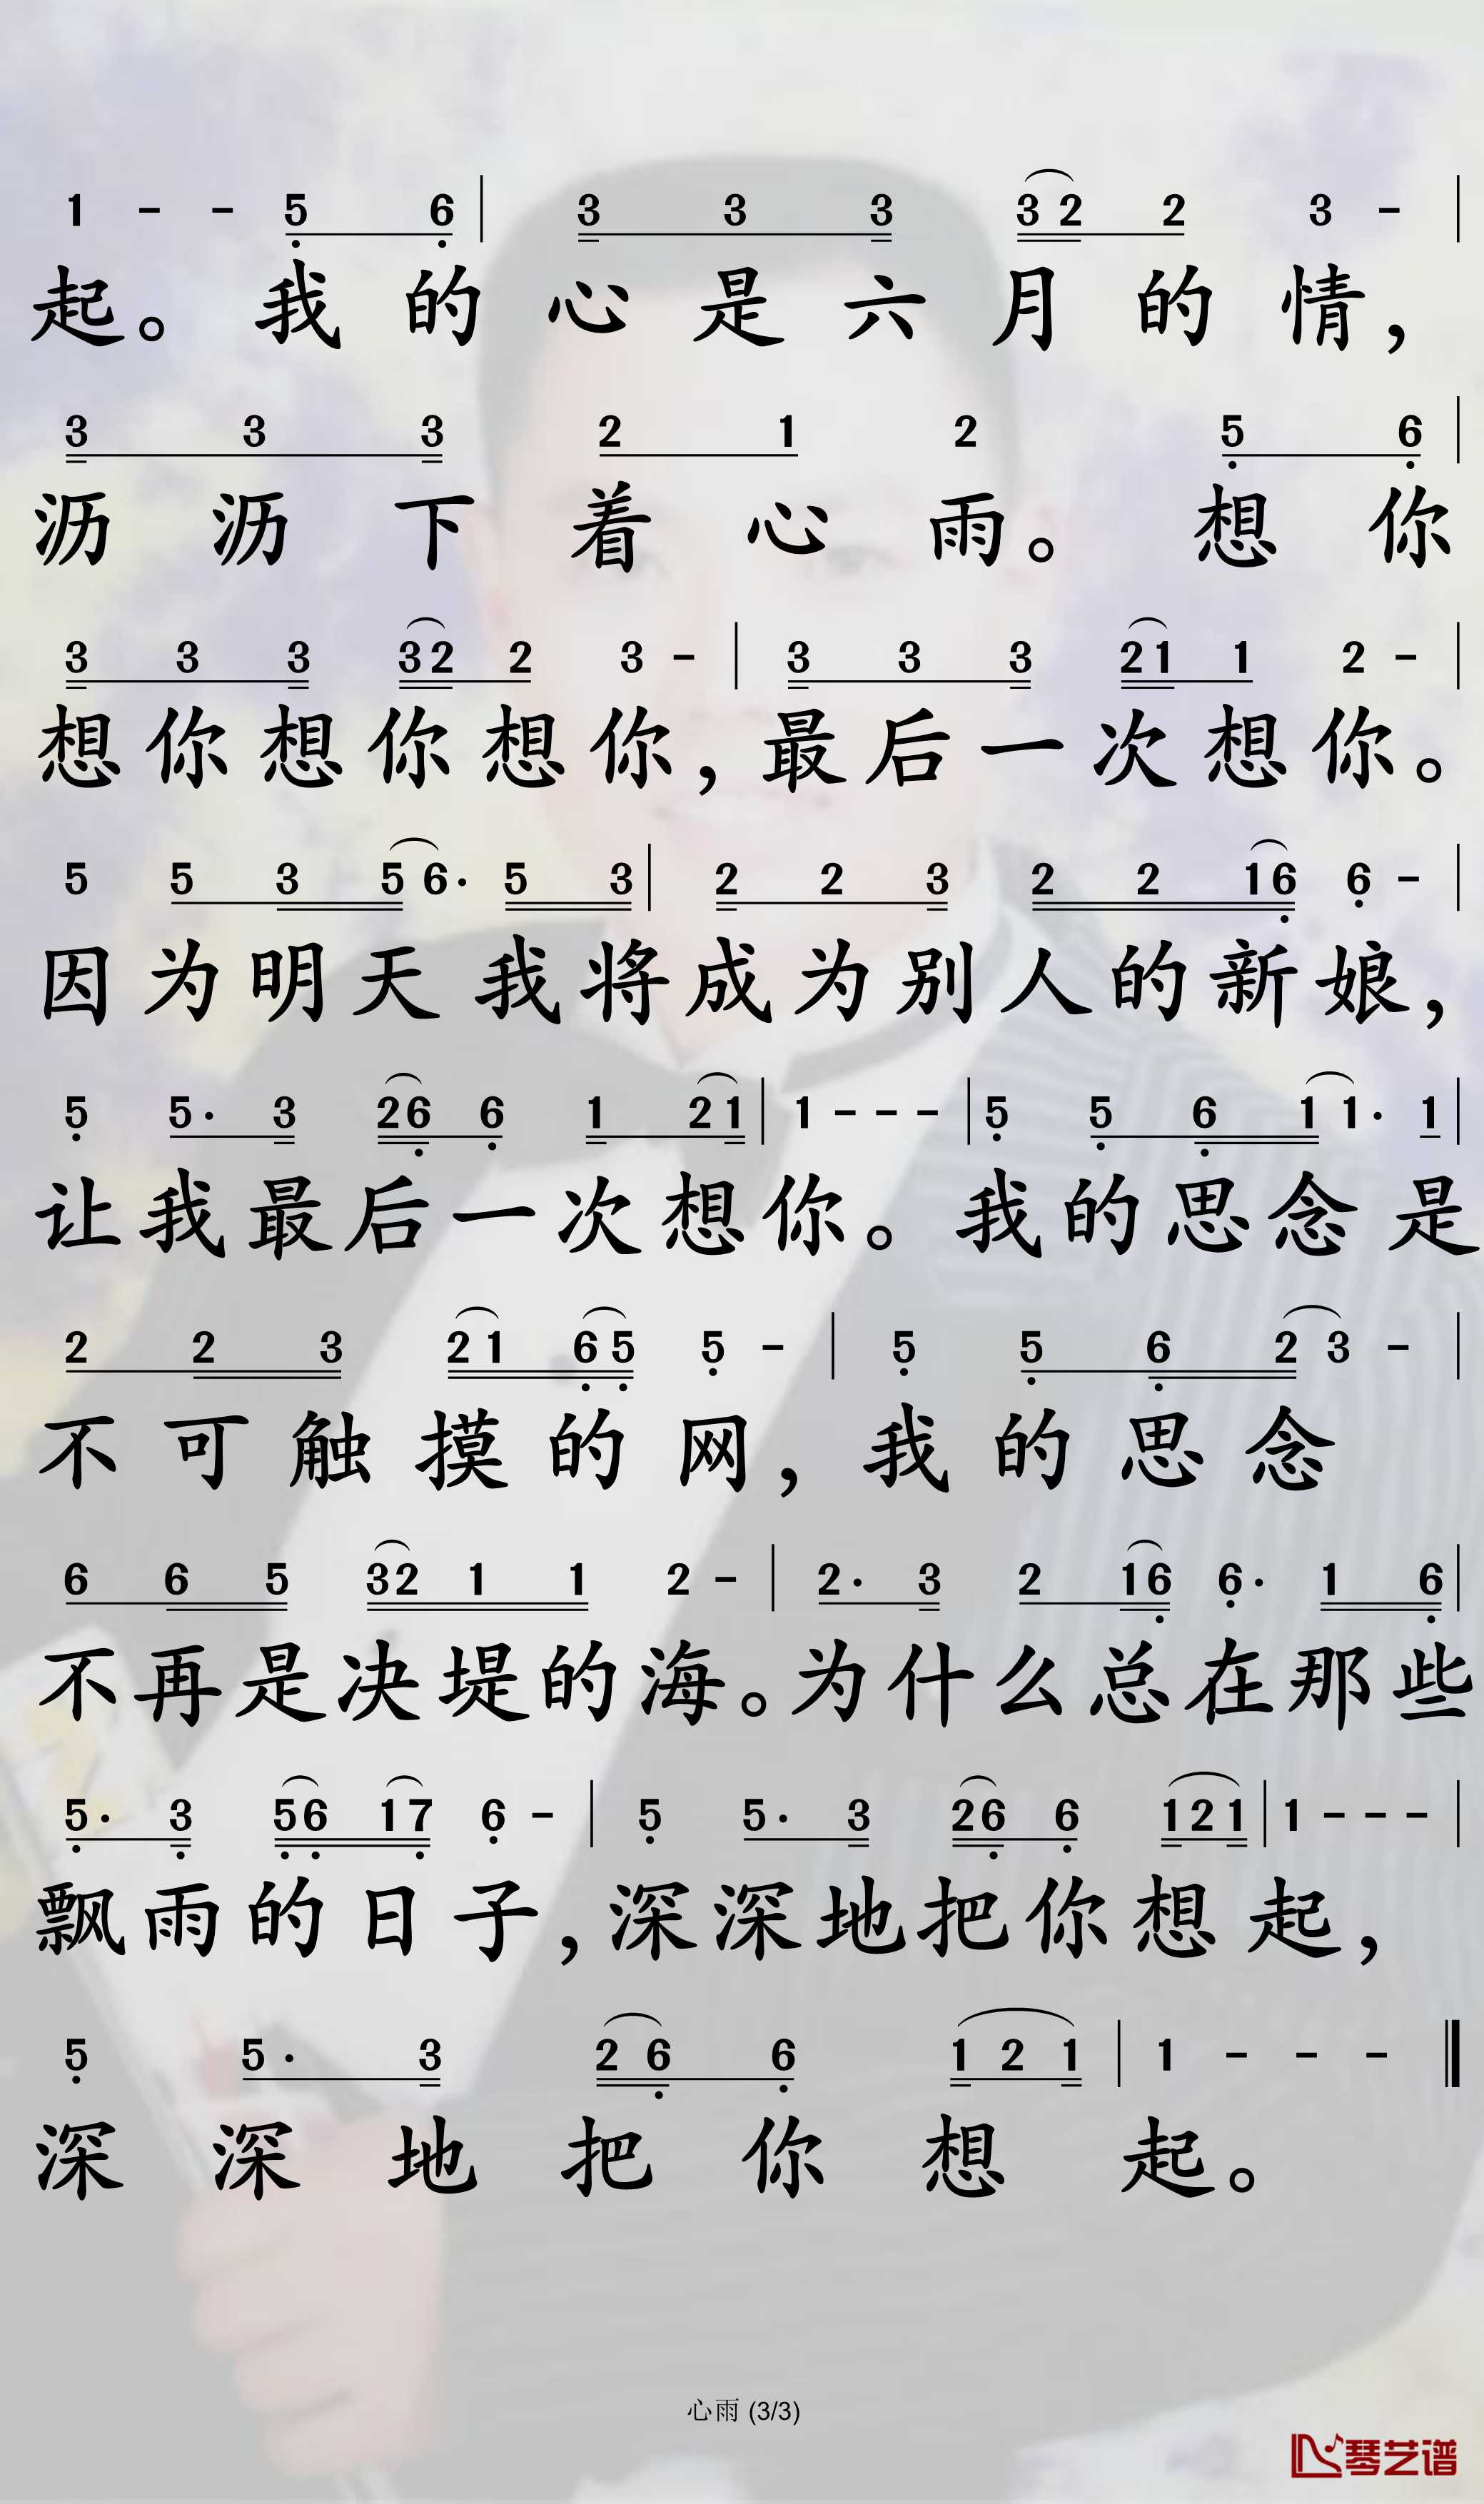 1 - - 5 6 | 3 3 3 3 2 2 3 - |
起。我的心是六月的情，
3 3 3 2 1 2 5 6 |
沥沥下着心雨。想你
3 3 3 3 2 2 3 - | 3 3 3 2 1 1 2 - |
想你想你想你，最后一次想你。
5 5 3 5 6· 5 3 | 2 2 3 2 2 1 6 6 - |
因为明天我将成为别人的新娘，
5 5· 3 2 6 6 1 2 1 | 1 - - - | 5 5 6 1 1· 1 |
让我最后一次想你。我的思念是
2 2 3 2 1 6 5 5 - | 5 5 6 2 3 - |
不可触摸的网，我的思念
6 6 5 3 2 1 1 2 - | 2· 3 2 1 6 6· 1 6 |
不再是决堤的海。为什么总在那些
5· 3 5 6 1 7 6 - | 5 5· 3 2 6 6 1 2 1 | 1 - - - |
飘雨的日子，深深地把你想起，
5 5· 3 2 6 6 1 2 1 | 1 - - - ‖
深深地把你想起。
心雨 (3/3)
琴艺谱